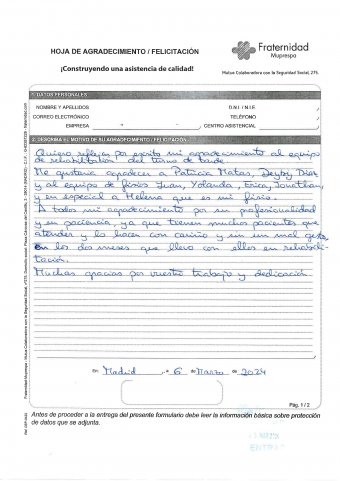 HOJA DE AGRADECIMIENTO / FELICITACIÓN
Fraternidad
Muprespa
¡Construyendo una asistencia de calidad!
Mutua Colaboradora con la Seguridad Social, 275.
1. DATOS PERSONALES
NOMBRE Y APELLIDOS
D.N.I. / N.I.F.
CORREO ELECTRÓNICO
TELÉFONO
EMPRESA
CENTRO ASISTENCIAL
2. DESCRIBA EL MOTIVO DE SU AGRADECIMIENTO / FELICITACIÓN
Quiero reflejar por escrito mi agradecimiento al equipo
de rehabilitación del turno de tarde.
Me gustaría agradecer a Patricia Matas, Deysy Díaz
y al equipo de fisios Juan, Yolanda, Erica, Jonathan,
y en especial a Helena que es mi fisio.
A todos mi agradecimiento por su profesionalidad
y su paciencia, ya que tienen muchos pacientes que
atender y lo hacen con cariño y sin un mal gesto
en los dos meses que llevo con ellos en rehabili-
tación.
Muchas gracias por vuestro trabajo y dedicación.
En Madrid, a 6 de Marzo de 2024
Pág. 1 / 2
Antes de proceder a la entrega del presente formulario debe leer la información básica sobre protección
de datos que se adjunta.